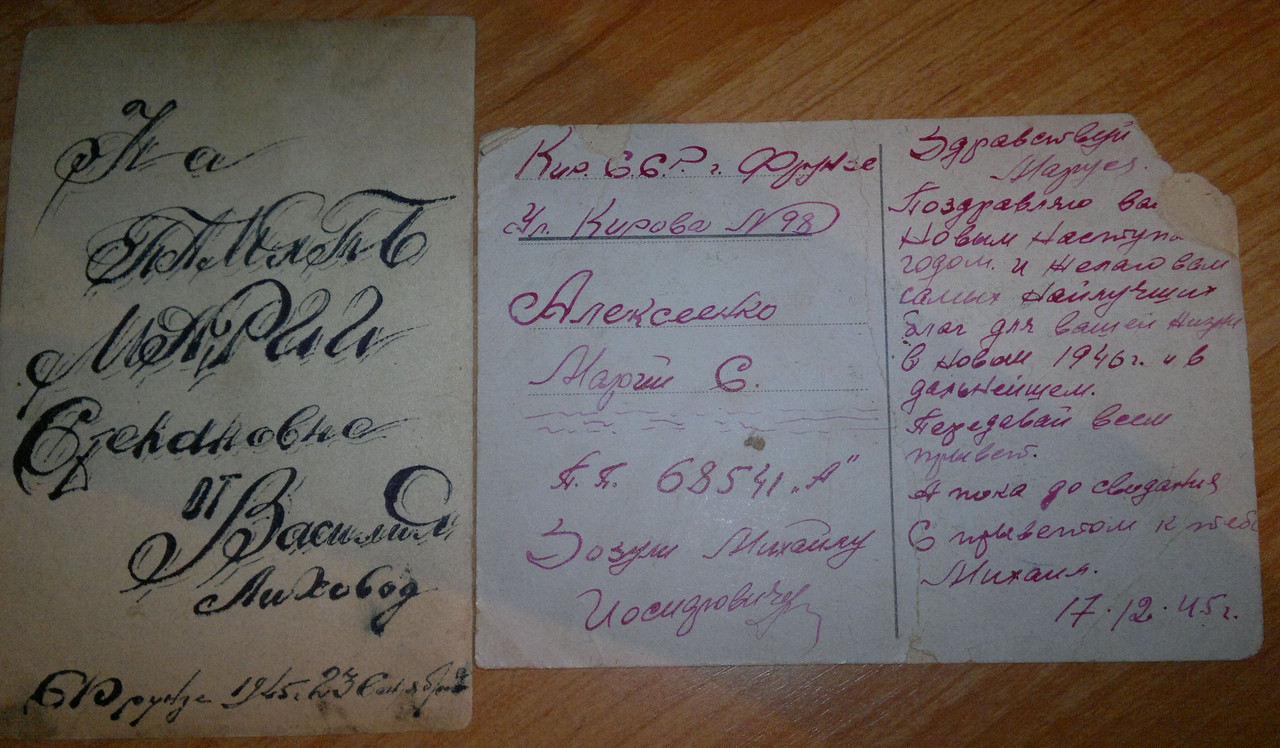 На
ПАМЯТЬ
МАРИИ
Степановне
от
Василия
Лиховод
г Фрунзе 1945г. 23 Сентября
Кир. С.С.Р. г. Фрунзе
Ул. Кирова № 98
Алексеенко
Марии С.
П.П. 68541 „А"
Зозули Михаилу
Иосифовичу
Здравствуй
Маруся.
Поздравляю вас
Новым Наступа
годом. и желаю вам
самых наилучших
благ для вашей жизни
в новом 1946г. и в
дальнейшем.
Передавай всем
привет.
А пока до свидания
С приветом к тебе
Михаил.
17.12.45г.